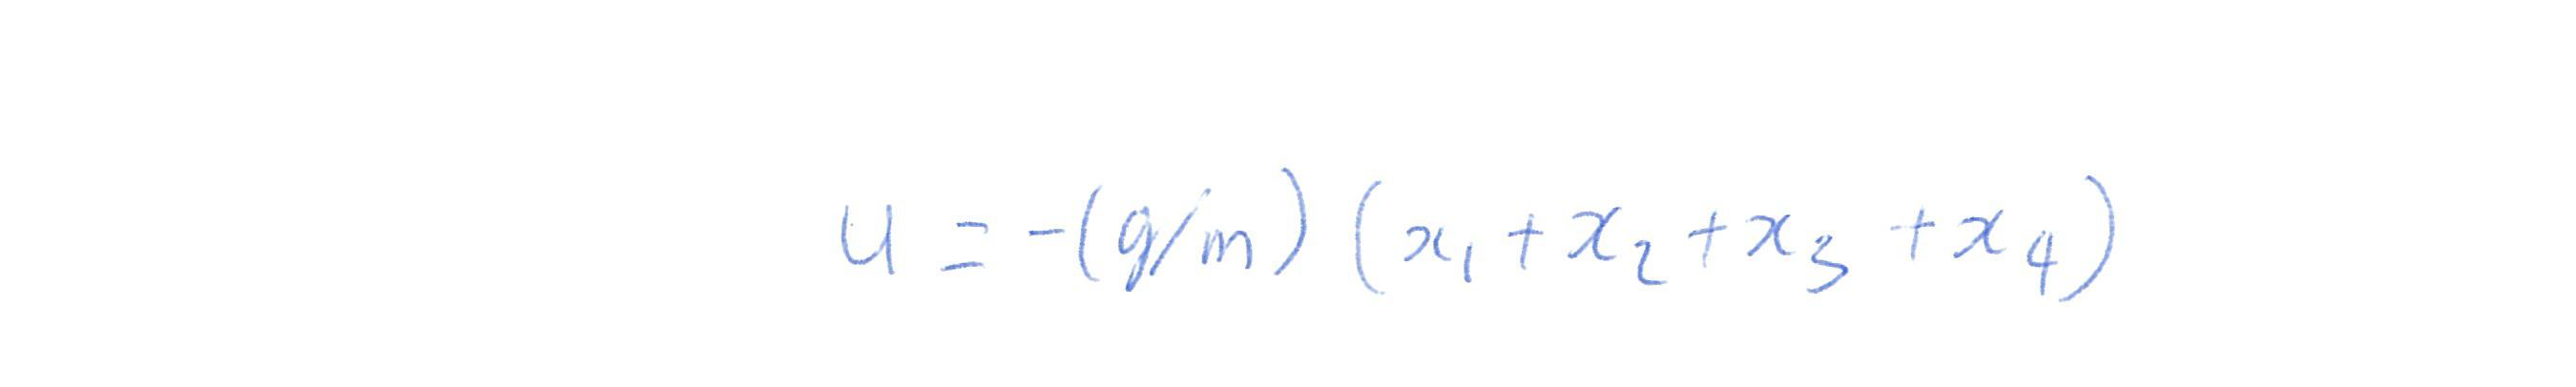 u = -(g/m) (x₁ + x₂ + x₃ + x₄)